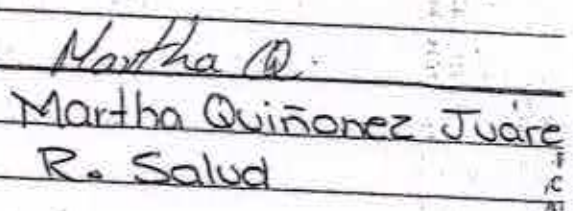 Martha Q.
Martha Quiñonez Juáre
R. Salud